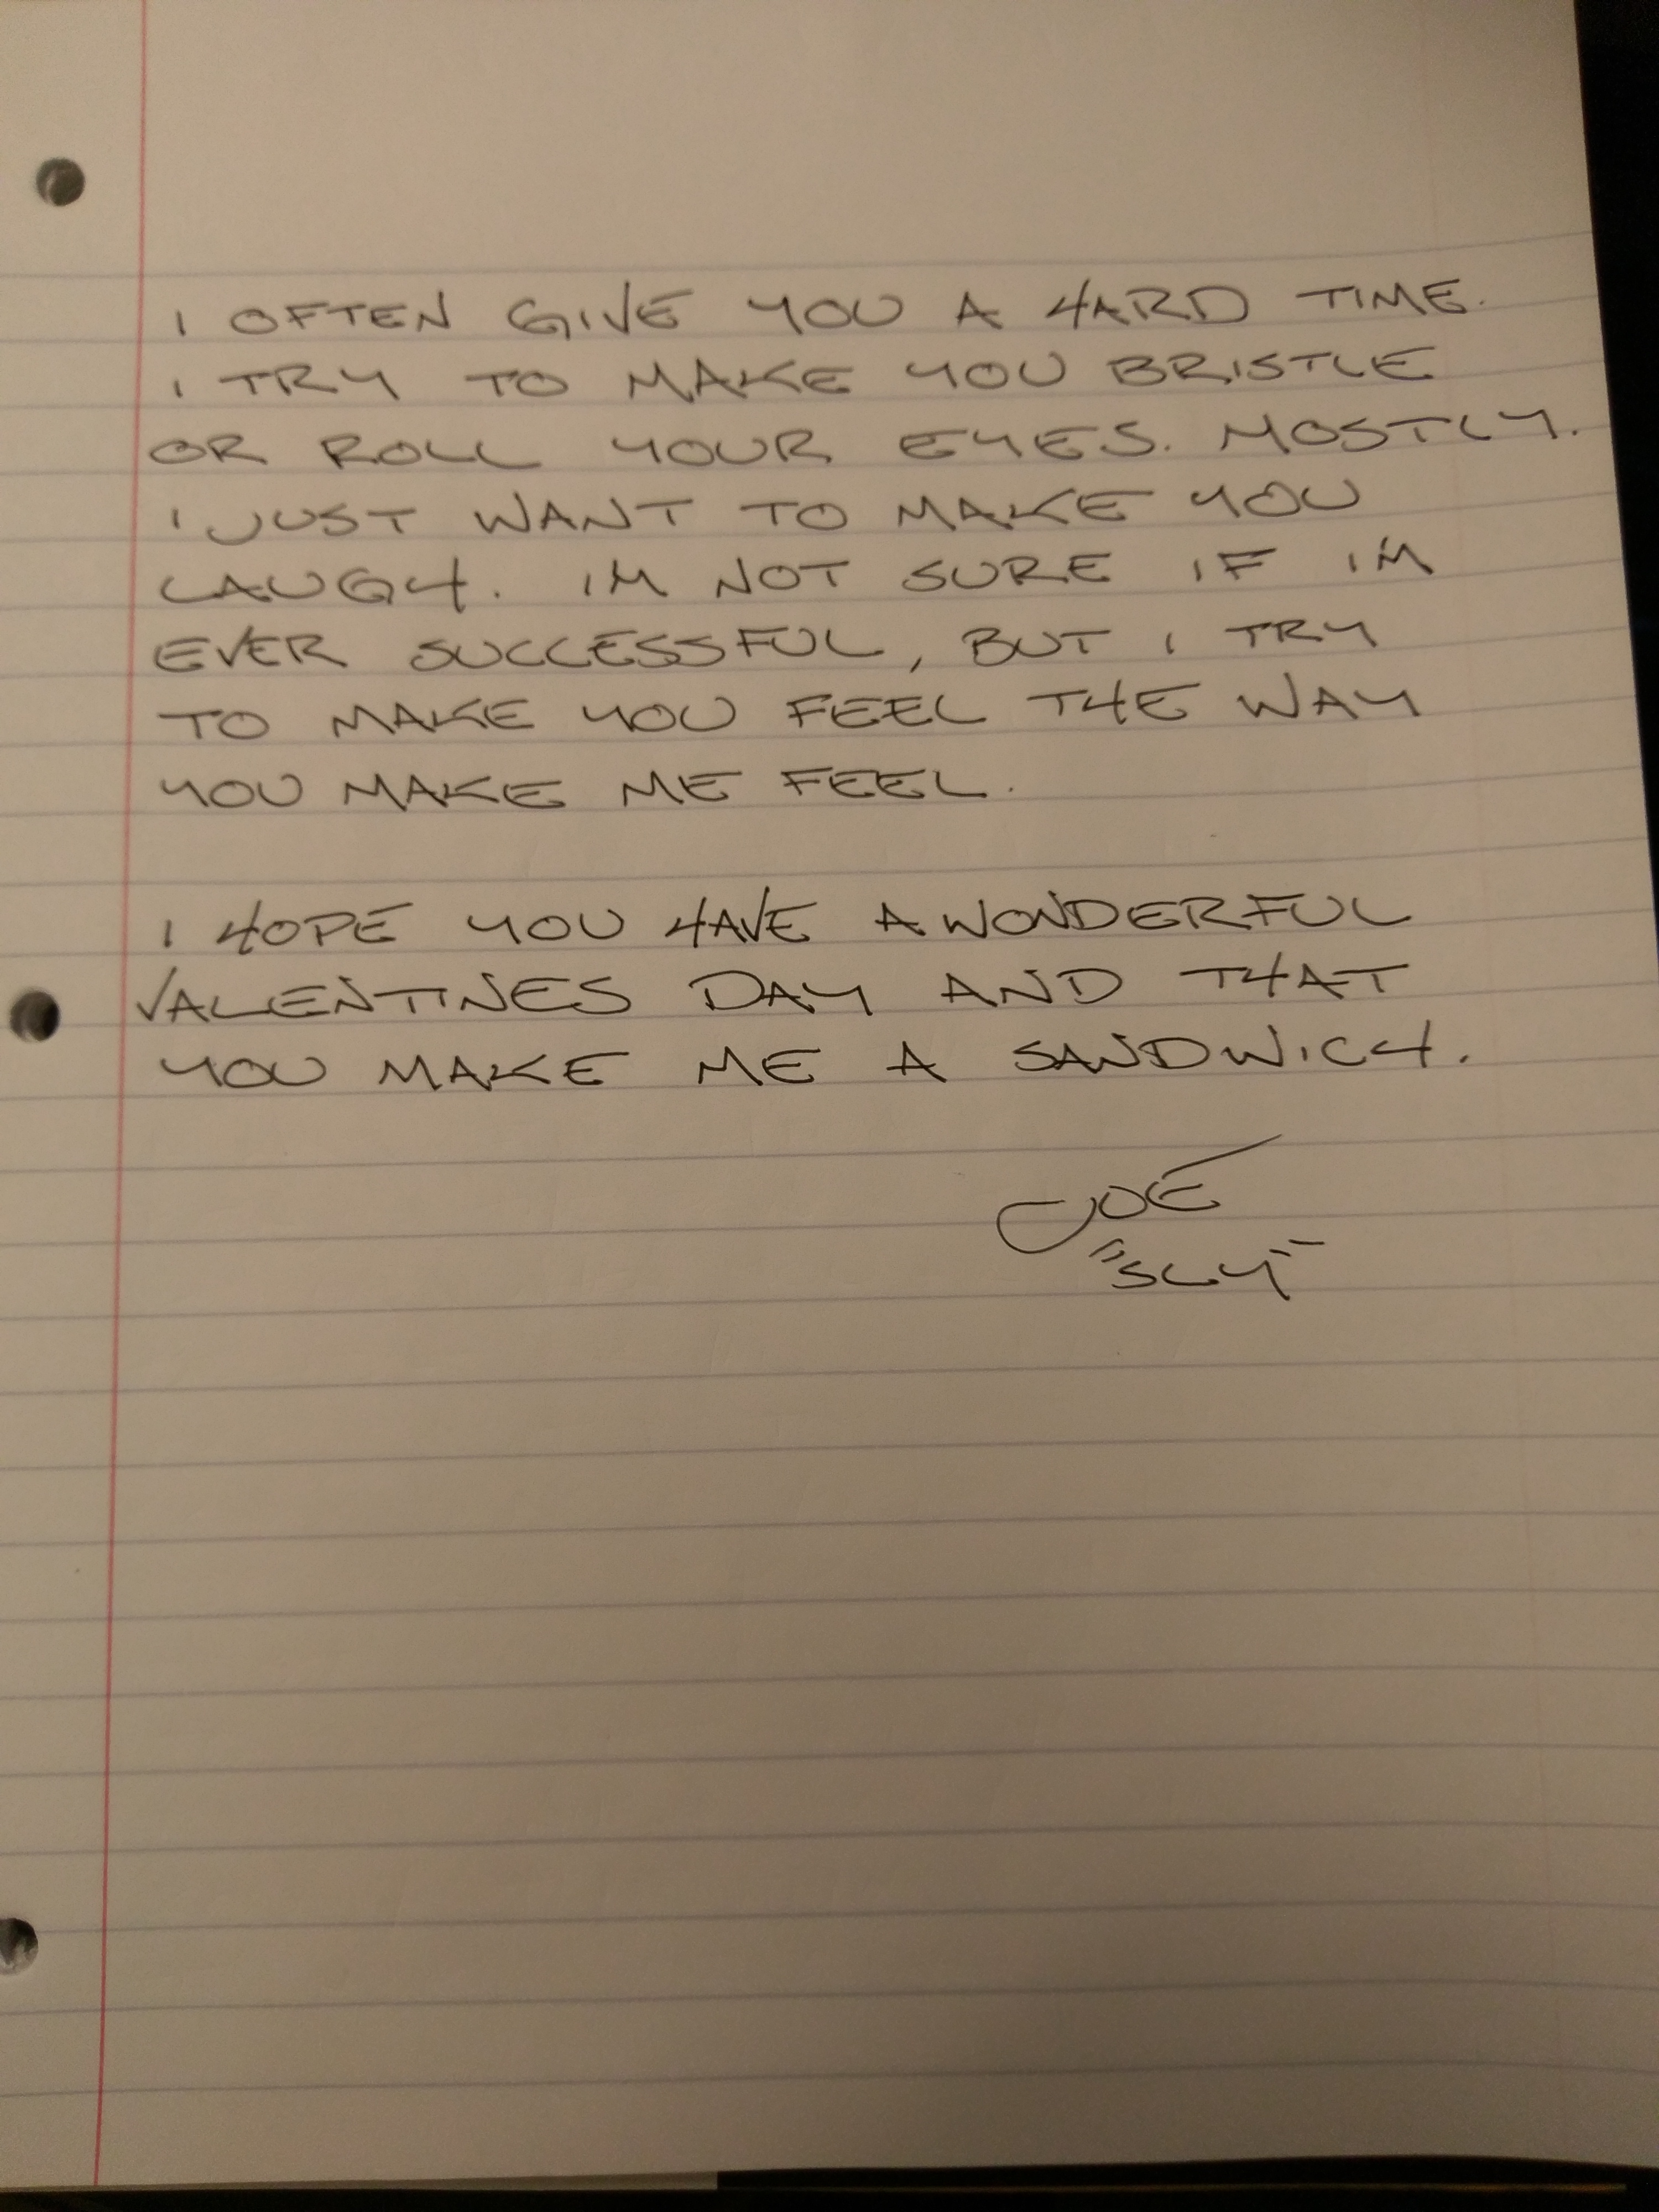 I OFTEN GIVE YOU A HARD TIME.
I TRY TO MAKE YOU BRISTLE
OR ROLL YOUR EYES. MOSTLY.
I JUST WANT TO MAKE YOU
LAUGH. IM NOT SURE IF I'M
EVER SUCCESSFUL, BUT I TRY
TO MAKE YOU FEEL THE WAY
YOU MAKE ME FEEL.
I HOPE YOU HAVE A WONDERFUL
VALENTINES DAY AND THAT
YOU MAKE ME A SANDWICH.
JOE
"SLY"